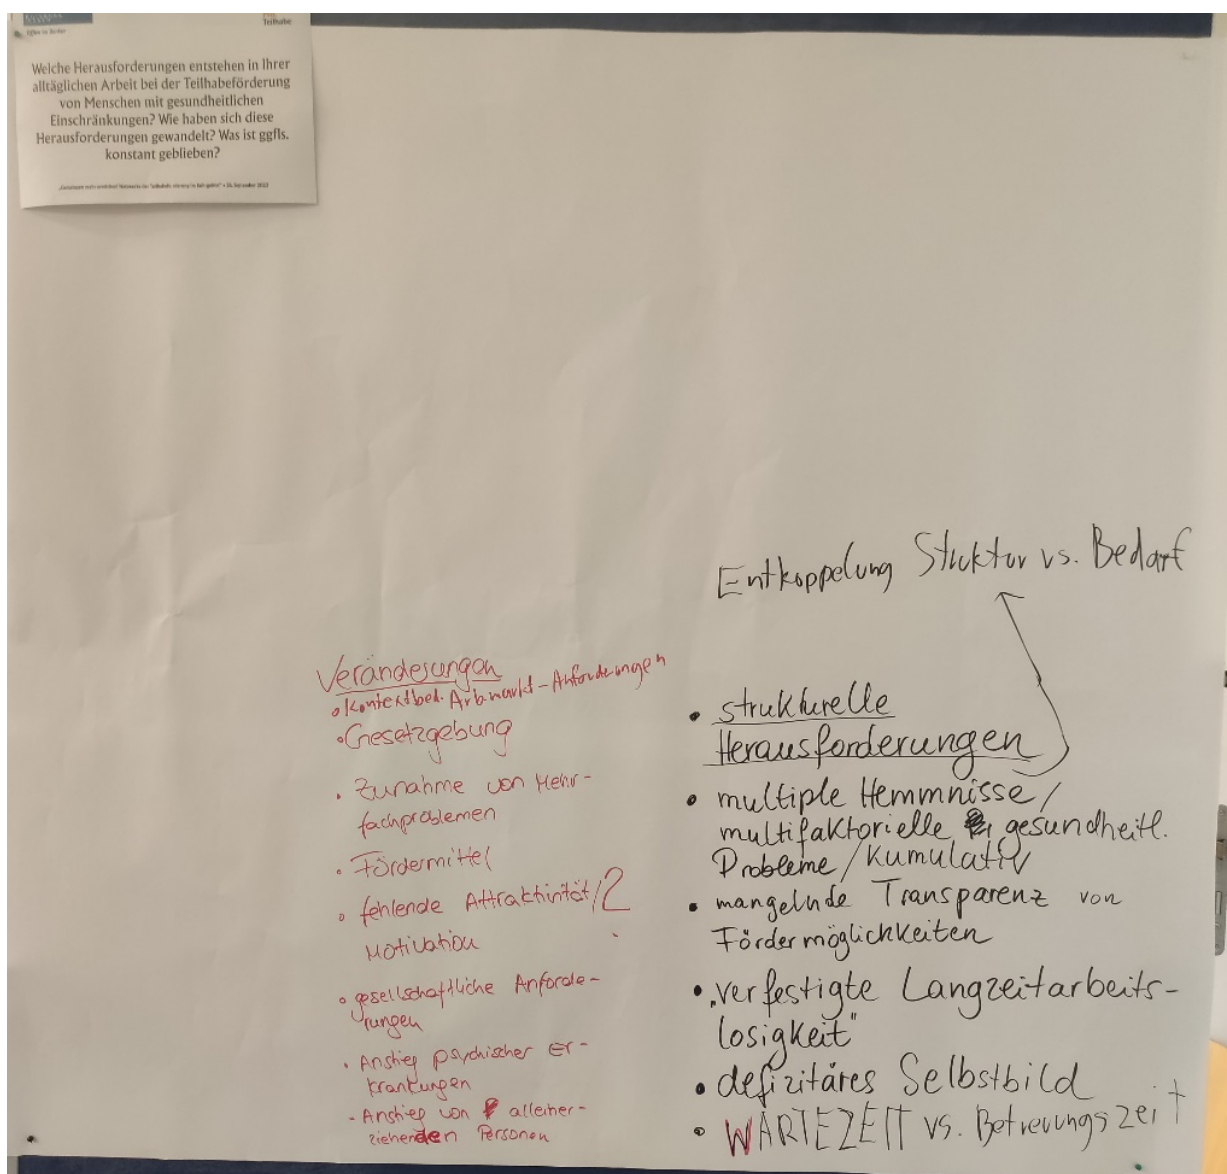 Teilhabe
Welche Herausforderungen entstehen in Ihrer
alltäglichen Arbeit bei der Teilhabeförderung
von Menschen mit gesundheitlichen
Einschränkungen? Wie haben sich diese
Herausforderungen gewandelt? Was ist ggfls.
konstant geblieben?
Entkoppelung Struktur vs. Bedarf
Veränderungen
• Kontextbed. Arb.markt-Anforderungen
• Gesetzgebung
• Zunahme von Mehr-
fachproblemen
• Fördermittel
• fehlende Attraktivität/?
Motivation
• gesellschaftliche Anforde-
rungen
• Anstieg psychischer Er-
krankungen
- Anstieg von alleiner-
ziehenden Personen
• strukturelle
Herausforderungen
• multiple Hemmnisse/
multifaktorielle gesundheitl.
Probleme/Kumulativ
• mangelnde Transparenz von
Fördermöglichkeiten
• „verfestigte Langzeitarbeits-
losigkeit"
• defizitäres Selbstbild
• WARTEZEIT vs. Betreuungszeit